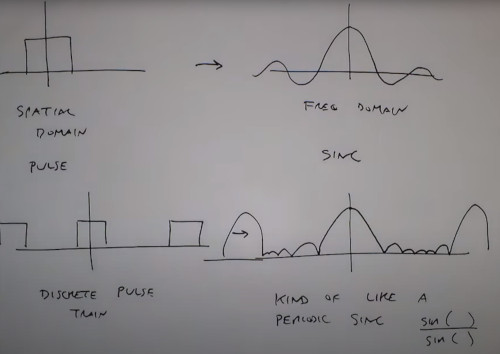 SPATIAL
DOMAIN
FREQ DOMAIN
PULSE
SINC
DISCRETE PULSE
TRAIN
KIND OF LIKE A
PERIODIC SINC sin( )
sin( )